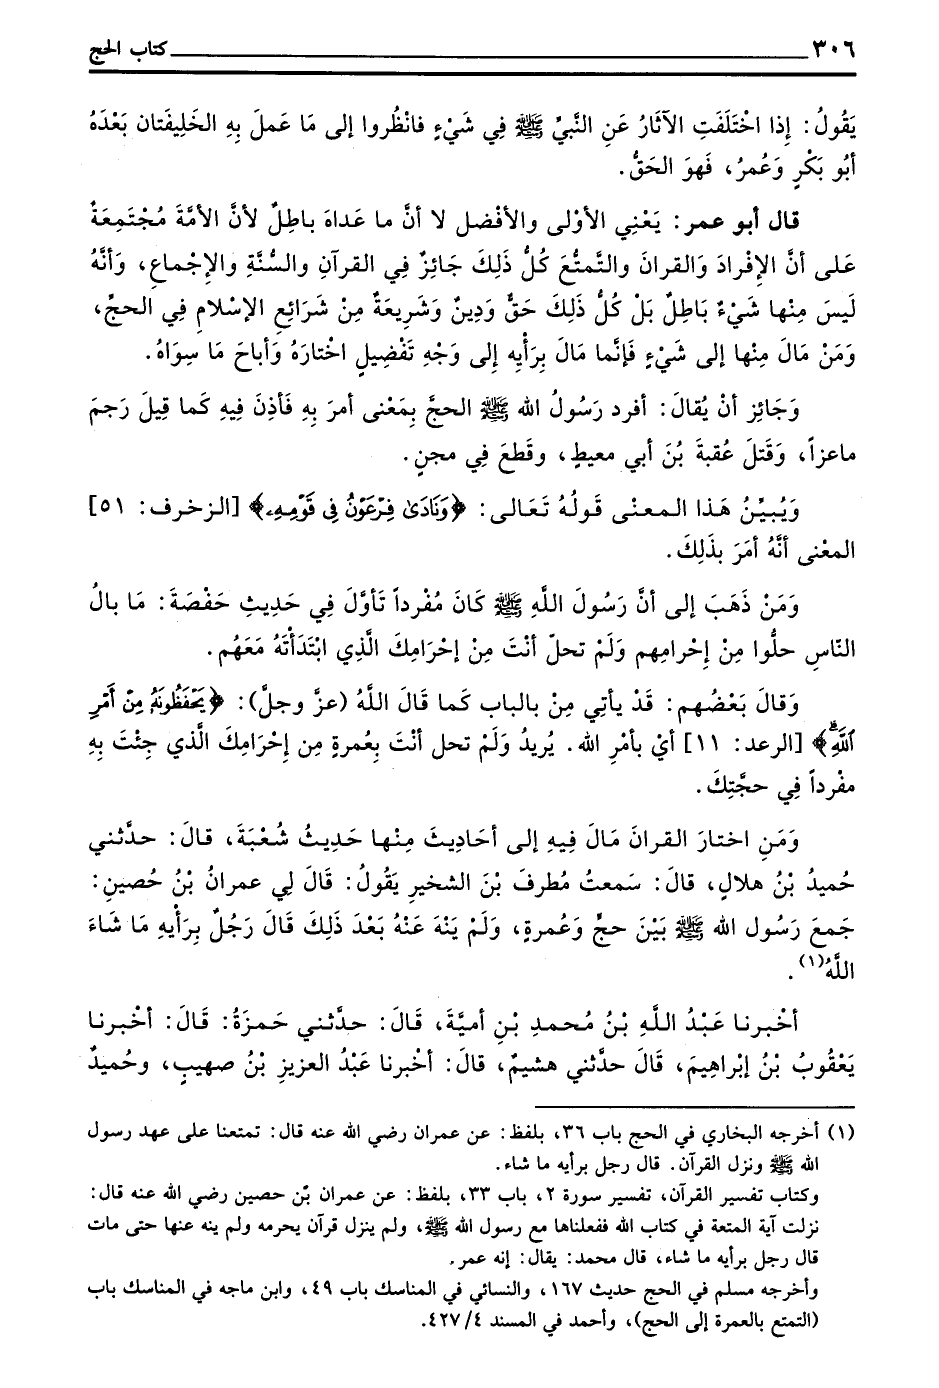 ٣٠٦ كتاب الحج
يَقُولُ: إِذا اخْتَلَفَتِ الآثَارُ عَنِ النَّبيِّ ﷺ فِي شَيْءٍ فانْظُروا إلى مَا عَملَ بِهِ الخَلِيفَتان بَعْدَهُ
أبُو بَكْرٍ وَعُمرُ، فَهوَ الحَقُّ.
قال أبو عمر: يَعْنِي الأوْلى والأفْضل لا أنَّ ما عَداهَ باطِلٌ لأنَّ الأمَّةَ مُجْتَمِعَةٌ
عَلى أنَّ الإفْرادَ وَالقرانَ والتَّمتُّعَ كُلُّ ذَلِكَ جَائِزٌ فِي القرآنِ والسُّنَّةِ والإجْماعِ، وَأنَّهُ
لَيسَ مِنْها شَيْءٌ بَاطِلٌ بَلْ كُلُّ ذَلِكَ حَقٌّ وَدِينٌ وَشَرِيعَةٌ مِنْ شَرَائِعِ الإسْلامِ فِي الحجِّ،
وَمَنْ مَالَ مِنْها إلى شَيْءٍ فَإنَّما مَالَ بِرَأْيِهِ إلى وَجْهِ تَفْضِيلٍ اخْتارَهُ وَأباحَ مَا سِوَاهُ.
وَجَائِز أنْ يُقالَ: أفرد رَسُولُ الله ﷺ الحجَّ بِمَعْنى أمرَ بِهِ فَأذِنَ فِيهِ كَما قِيلَ رَجمَ
ماعزاً، وَقَتلَ عُقبةَ بُنَ أبي معيطٍ، وقَطعَ فِي مجنٍ.
وَيُبيِّنُ هَذا المعنى قَولُهُ تَعَالى: ﴿وَنَادَىٰ فِرْعَوْنُ فِي قَوْمِهِۦ﴾ [الزخرف: ٥١]
المعْنى أنَّهُ أمَرَ بذَلِكَ.
وَمَنْ ذَهَبَ إلى أنَّ رَسُولَ اللَّهِ ﷺ كَانَ مُفْرداً تَأوَّلَ فِي حَدِيثِ حَفْصَةَ: مَا بالُ
النّاسِ حلُّوا مِنْ إحْرامِهم وَلَمْ تحلّ أنْتَ مِنْ إحْرَامِكَ الَّذِي ابْتَدَأْتَهُ مَعَهُم.
وَقالَ بَعْضُهم: قَدْ يأتي مِنْ بالباب كَما قَالَ اللَّهُ (عزَّ وجلَّ): ﴿يَحْفَظُونَهُ مِنْ أَمْرِ
ٱللَّهِۗ﴾ [الرعد: ١١] أيْ بأمْرِ الله. يُريدُ وَلَمْ تحل أنْتَ بِعُمرةٍ مِن إحْرَامِكَ الَّذي جِئْتَ بِهِ
مفْرداً فِي حجَّتِكَ.
وَمَنِ اختارَ القرانَ مَالَ فِيهِ إلى أحَادِيثَ مِنْها حَدِيثُ شُعْبَةَ، قالَ: حدَّثني
حُميدُ بْنُ هلالٍ، قالَ: سَمعتُ مُطرفَ بْنَ الشخيرِ يَقُولُ: قَالَ لِي عمرانُ بْنُ حُصينِ:
جَمعَ رَسُول الله ﷺ بَيْنَ حجٍّ وَعُمرةٍ، وَلَمْ يَنْهَ عَنْهُ بَعْدَ ذَلِكَ قَالَ رَجُلٌ بِرَأْيِهِ مَا شَاءَ
اللَّهُ(١).
أخْبرنا عَبْدُ اللَّهِ بْنُ مُحمدِ بْنِ أميَّةَ، قَالَ: حدَّثني حَمزَةُ: قَالَ: أخْبرنا
يَعْقُوبُ بْنُ إبْراهِيمَ، قَالَ حدَّثني هشيمٌ، قالَ: أخْبرنا عَبْدُ العزيزِ بْنُ صهيبٍ، وحُميدٌ
(١) أخرجه البخاري في الحج باب ٣٦، بلفظ: عن عمران رضي الله عنه قال: تمتعنا على عهد رسول
الله ﷺ ونزل القرآن. قال رجل برأيه ما شاء.
وكتاب تفسير القرآن، تفسير سورة ٢، باب ٣٣، بلفظ: عن عمران بْن حصين رضي الله عنه قال:
نزلت آية المتعة في كتاب الله ففعلناها مع رسول الله ﷺ، ولم ينزل قرآن يحرمه ولم ينه عنها حتى مات
قال رجل برأيه ما شاء، قال محمد: يقال: إنه عمر.
وأخرجه مسلم في الحج حديث ١٦٧، والنسائي في المناسك باب ٤٩، وابن ماجه في المناسك باب
(التمتع بالعمرة إلى الحج)، وأحمد في المسند ٤/ ٤٢٧.